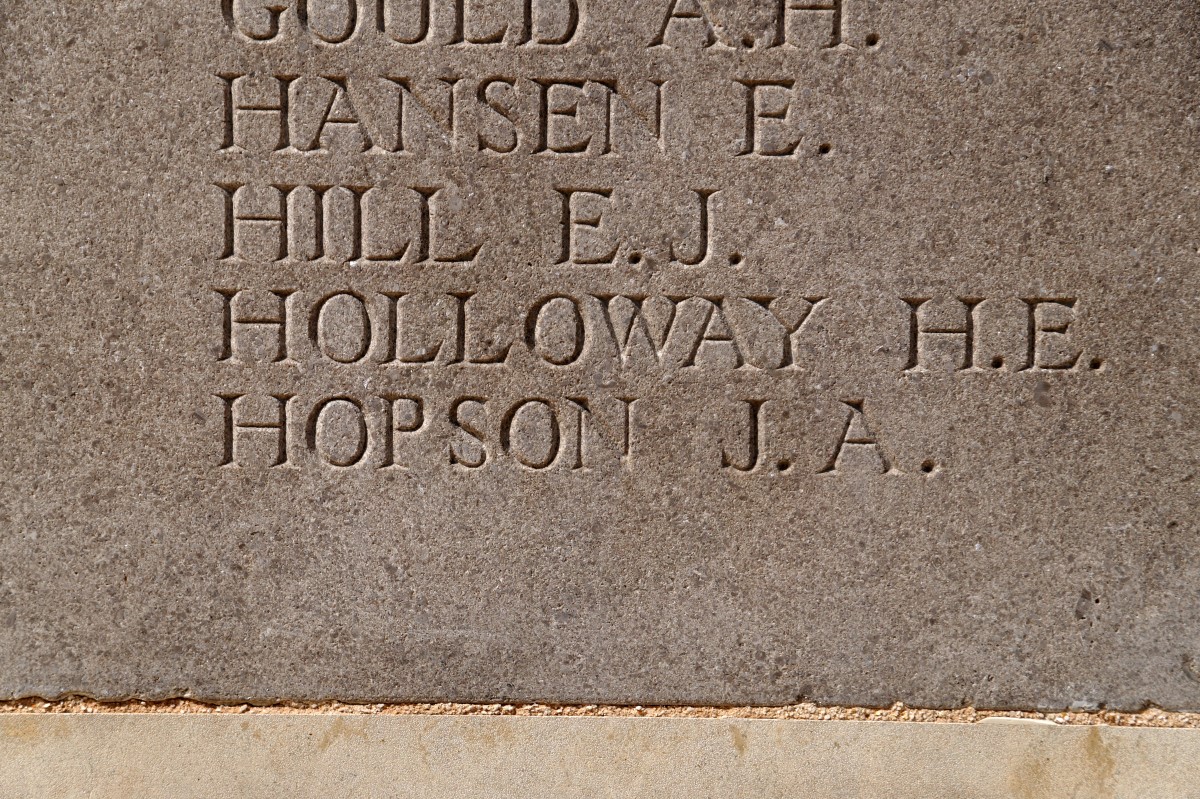 GOULD A.H.
HANSEN E.
HILL E.J.
HOLLOWAY H.E.
HOPSON J.A.